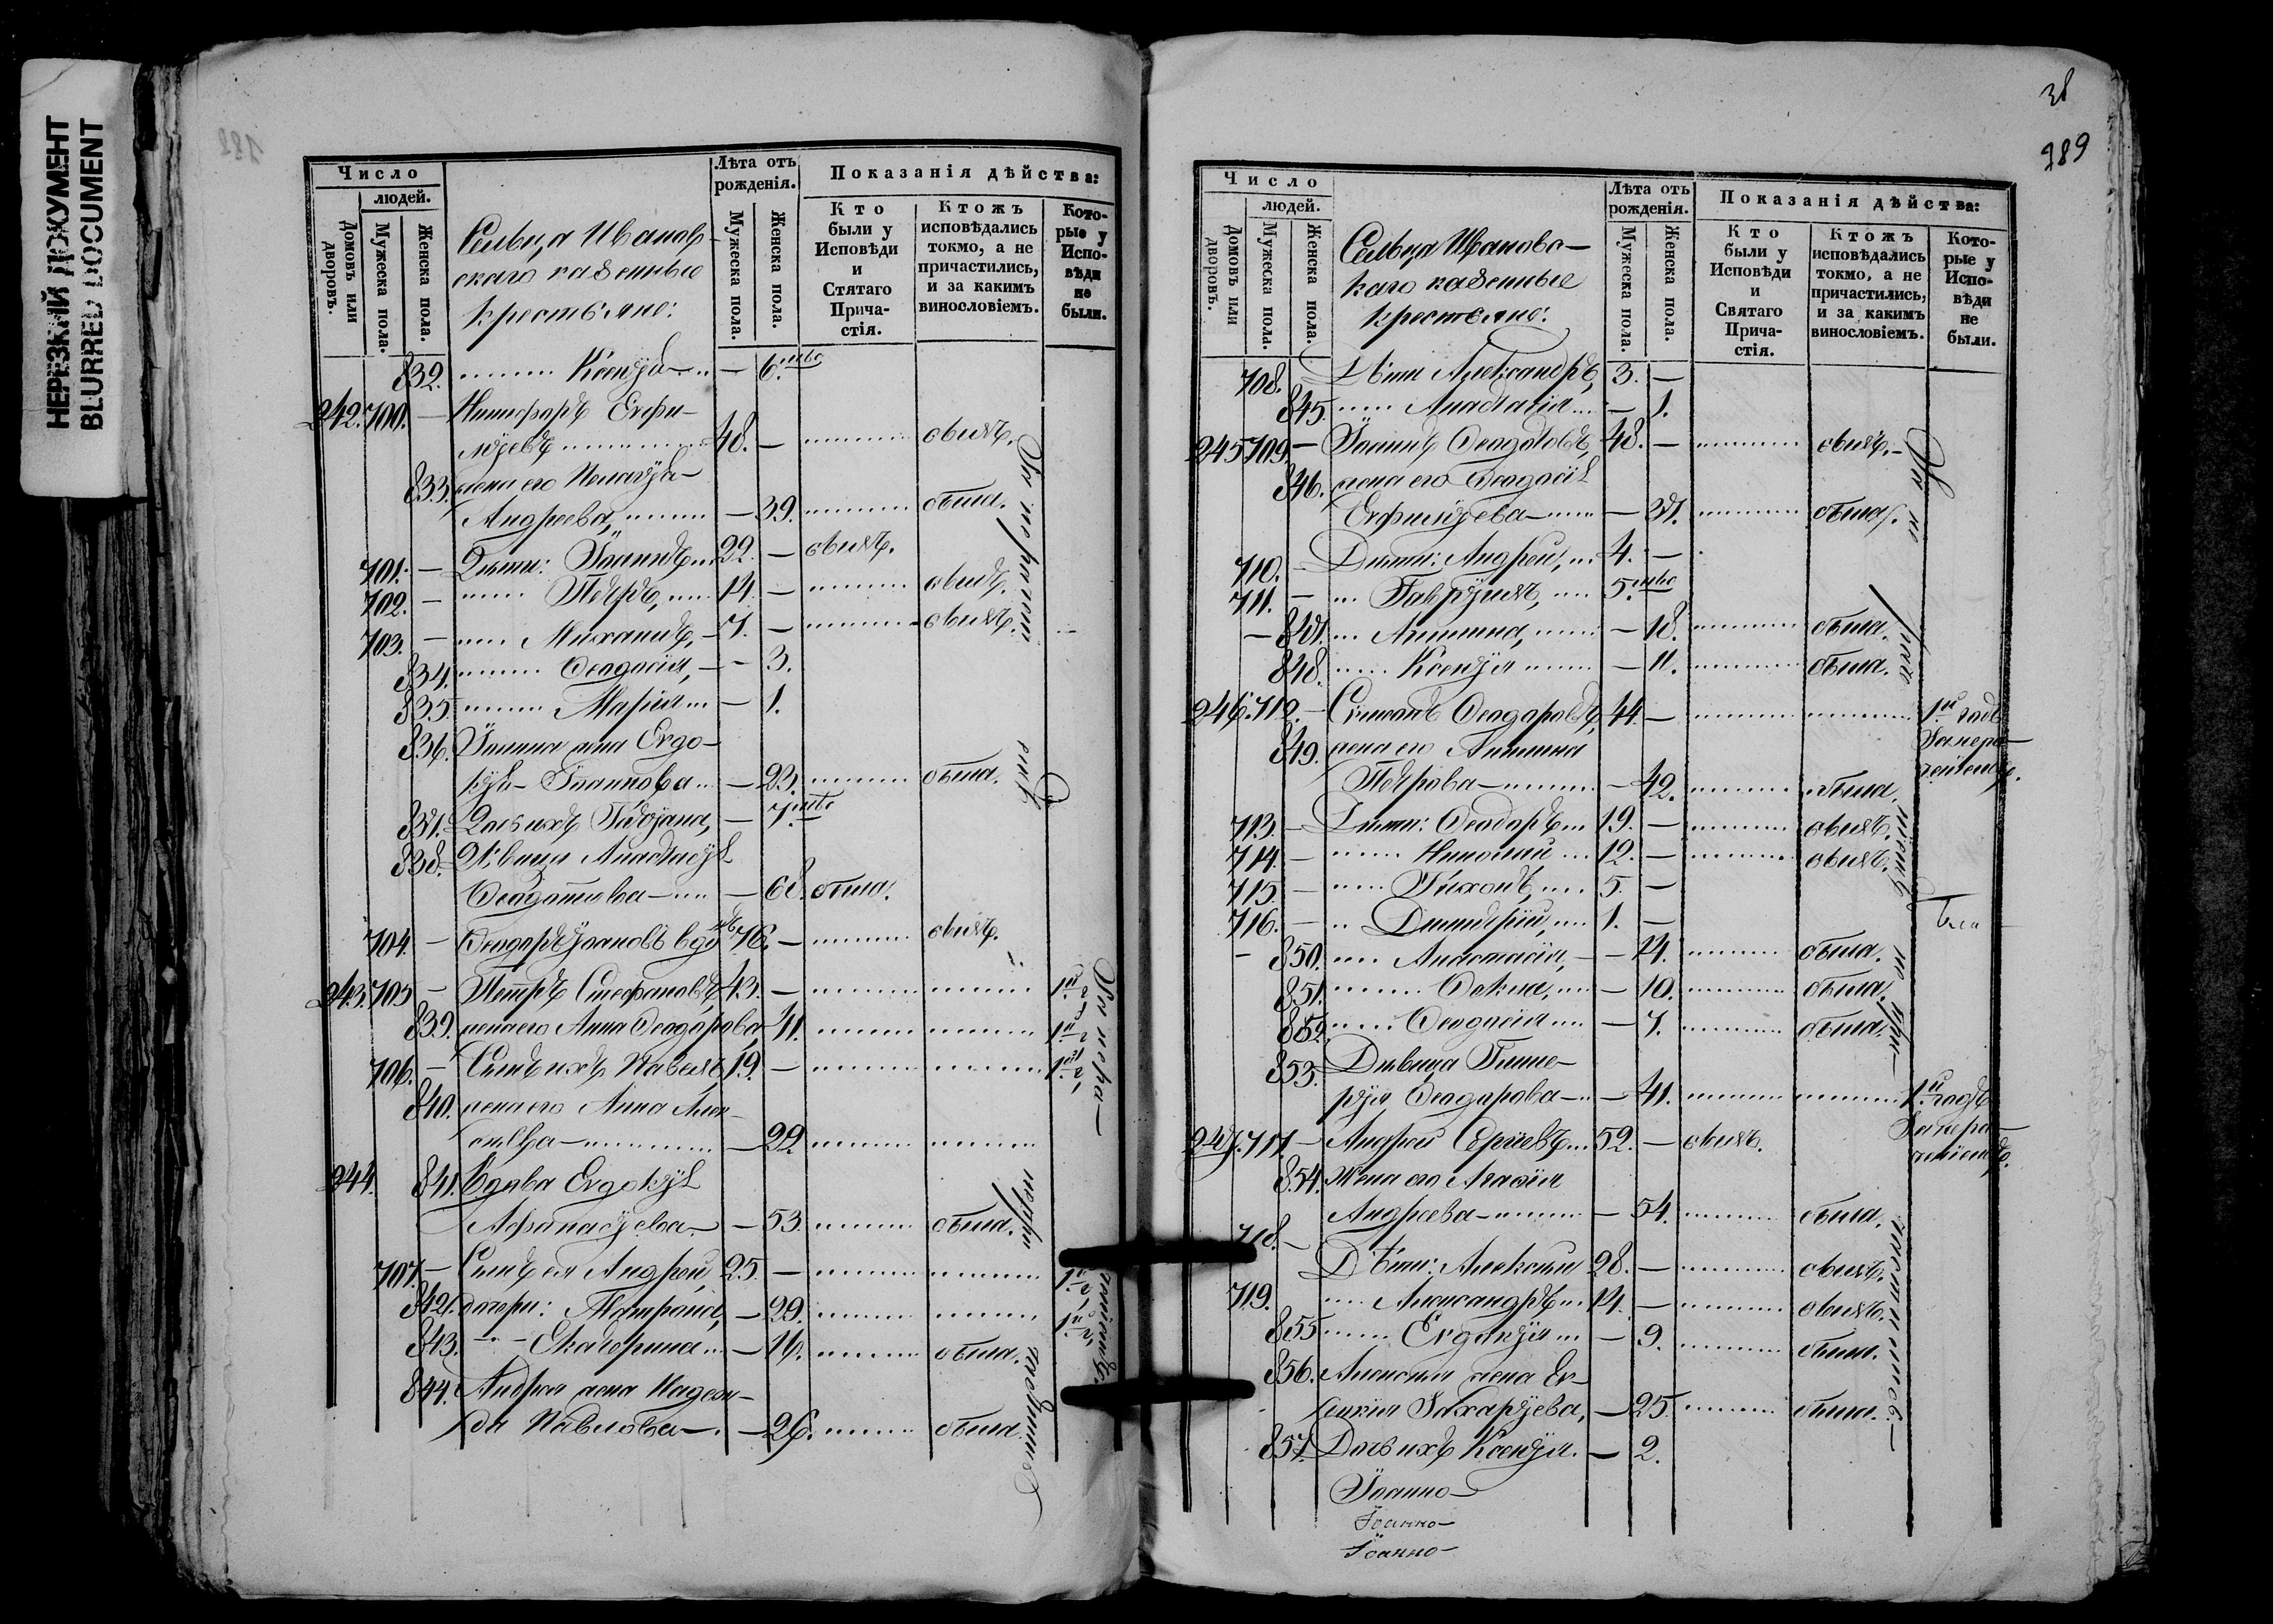 НЕРЕЗКИЙ ДОКУМЕНТ
BLURRED DOCUMENT
Число
людей.
Домовъ или дворовъ.
Мужеска пола.
Женска пола.
Сельца Иванов-
скаго казенные
крестьяне:
Лѣта отъ рожденія.
Мужеска пола.
Женска пола.
Показанія дѣйства:
Кто были у Исповѣди и Святаго Причастія.
Ктожъ исповѣдались токмо, а не причастились, и за какимъ винословіемъ.
Которые у Исповѣди не были.
832. Ксенія — 6.
242. 700. — Никифоръ Евфи-
міевъ 48. — овылъ.
833. жена его Пелагія
Андреева, — 39. обыла.
701. — Дѣти: Іоаннъ 22. — овылъ.
702. — Петръ, 14. — овылъ.
703. — Михаилъ, 7. — овылъ.
834. Феодосія, — 3.
835. Марія — 1.
836. Іоанна жена Евдо-
кія Іоаннова — 23. обыла.
837. Дочь ихъ Татіана, — 7.
838. Дѣвица Анастасія
— 68. обыла.
704. — Феодоръ Іоанновъ вдовъ 76. — овылъ.
243. 705 — Петръ Стефановъ, 43. —
839. жена его Анна Феодорова 41.
706. — Сынъ ихъ Павелъ 19. —
840. жена его Анна Алек-
сѣева — 22
244. 841. Вдова Евдокія
Афанасіева — 53. обыла.
707. — Сынъ ея Андрей, 25. —
842. дочери: Матрона, — 29.
843. Екатерина — 16. обыла.
844. Андрея жена Надеж-
да Павлова — 26. обыла.
38
289
Число
людей.
Домовъ или дворовъ.
Мужеска пола.
Женска пола.
Сельца Ивановс-
каго казенные
крестьяне:
Лѣта отъ рожденія.
Мужеска пола.
Женска пола.
Показанія дѣйства:
Кто были у Исповѣди и Святаго Причастія.
Ктожъ исповѣдались токмо, а не причастились, и за какимъ винословіемъ.
Которые у Исповѣди не были.
708. Дѣти Александръ, 3. —
845. Анастасія — 1.
245 709. — Іоаннъ Феодотовъ, 48. — овылъ.
846. жена его Феодосія
Евфиміева — 37. обыла.
710. Дѣти: Андрей, 4. —
711. — Гавріилъ, 5.
— 847. Анна, — 18. обыла.
848. Ксенія — 11. обыла.
246. 712. — Стефанъ Феодоровъ, 44. — 1й годъ
849. жена его Анна
Петрова — 42. обыла.
713. — Дѣти: Феодоръ 19. — овылъ.
714. — Николай 12. — овылъ.
715. — Тихонъ, 5. —
716. — Димитрій, 1. —
850. Анастасія, — 14. обыла.
851. Фекла, — 10. обыла.
852. Феодосія — 7. обыла.
853. Дѣвица Глике-
рія Феодорова — 41. 1й годъ
247. 717 — Андрей Сергіевъ 52. — овылъ.
854. Жена его Агафія
Андреева — 54. обыла.
718. — Дѣти: Алексѣй 28. — овылъ.
719. Александръ 14. — овылъ.
855 Евдокія — 9. обыла.
856. Алексѣя жена Ев-
Захаріева, — 25. обыла.
857. Дочь ихъ Ксенія. — 2.
Іоанно—
Іоанно—
Іоанно—